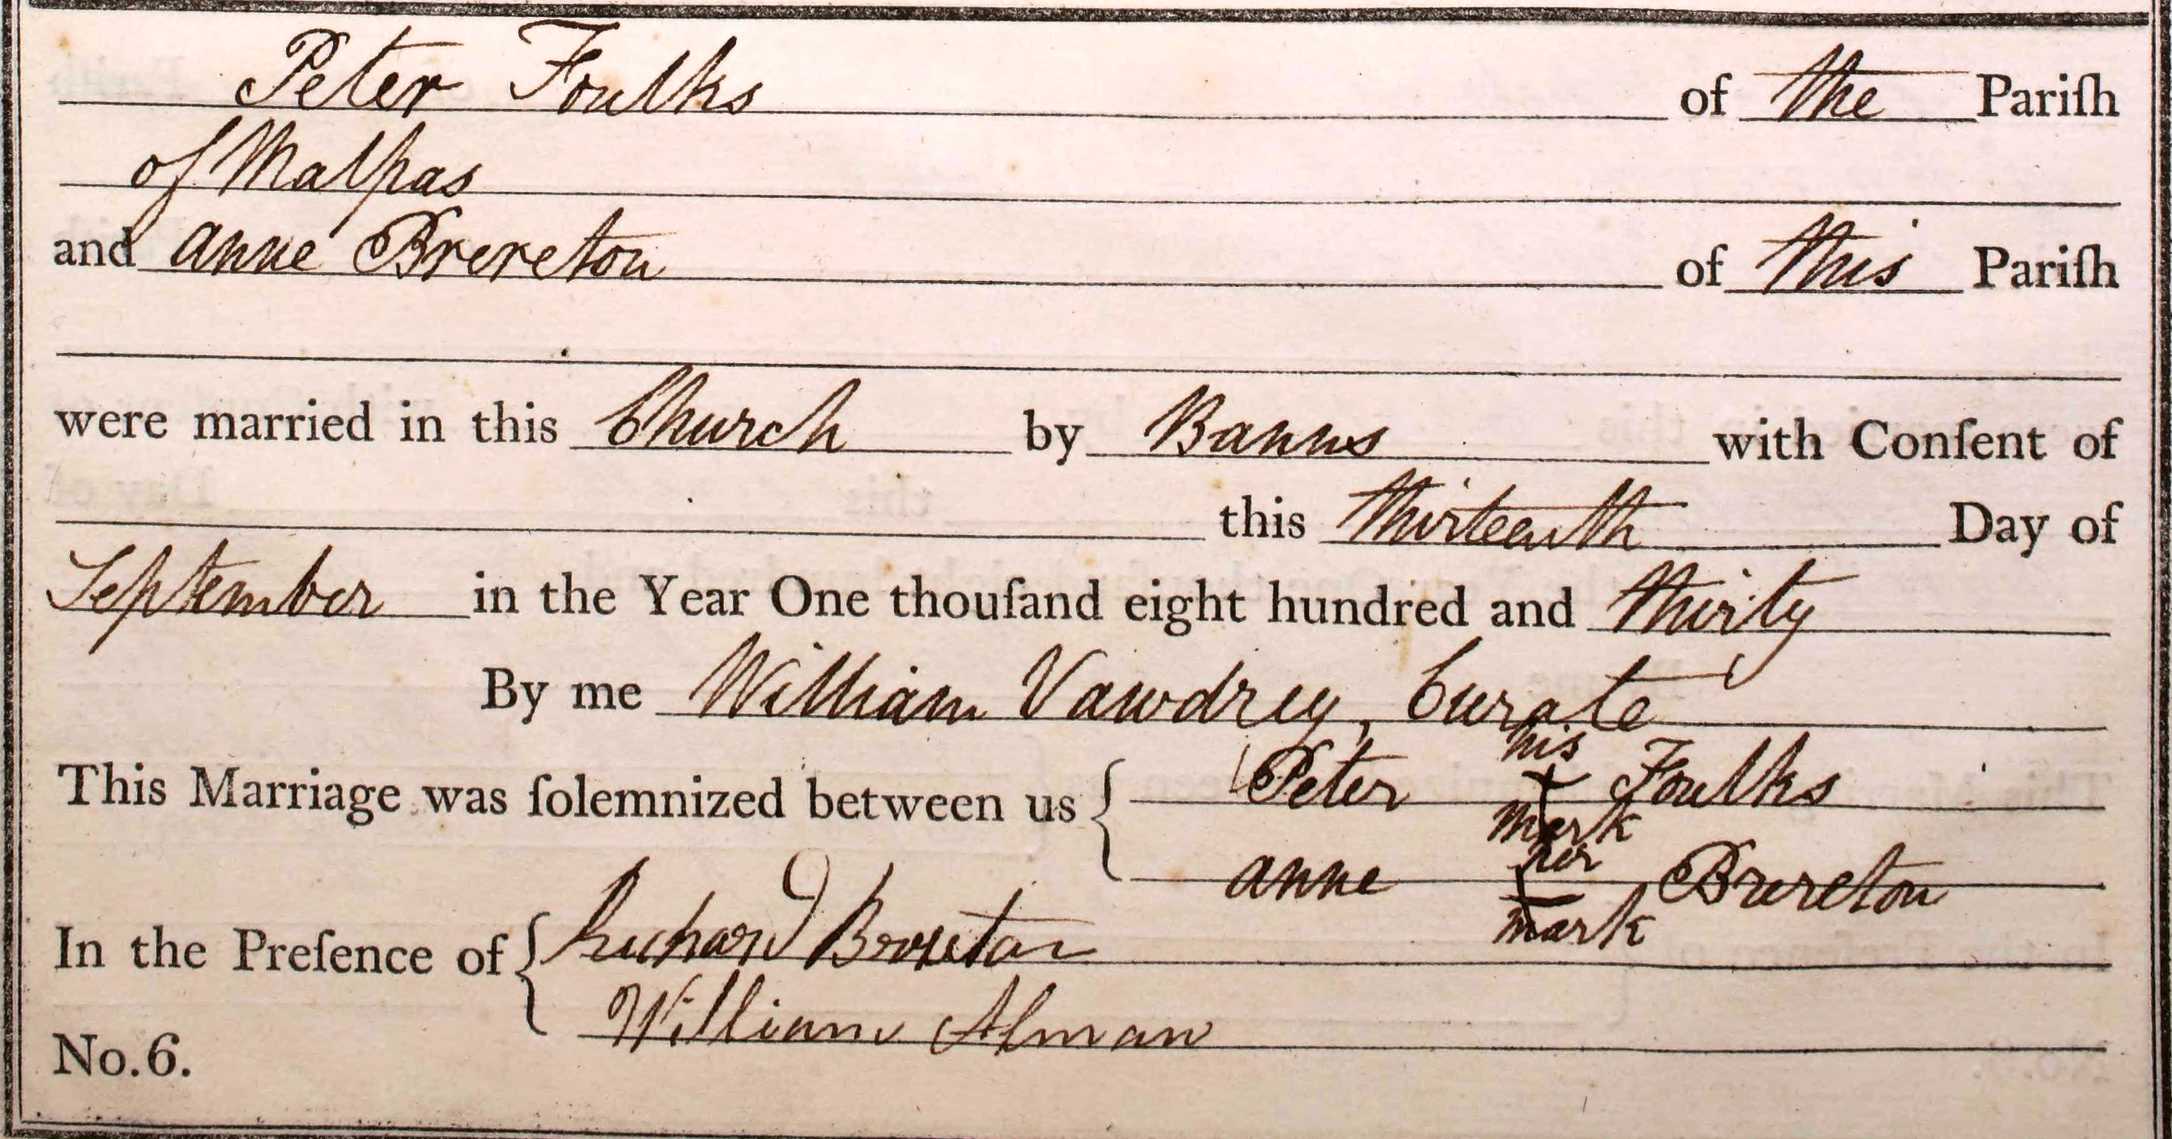 Peter Foulks of the Pariſh
of Malpas
and anne Brereton of this Pariſh
were married in this Church by Banns with Conſent of
this thirteenth Day of
September in the Year One thouſand eight hundred and thirty
By me William Vawdrey, Curate
his
This Marriage was ſolemnized between us Peter Foulks
mark
her
anne Brereton
mark
In the Preſence of Richard Broretan
William Alman
No. 6.